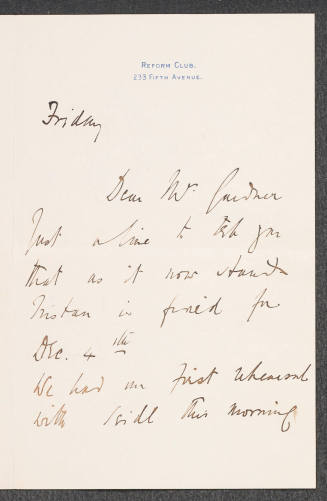 REFORM CLUB.
233 FIFTH AVENUE.
Friday
Dear Mr. Gardner
Just a line to tell you
that as it now stands
Tristan is fixed for
Dec. 4th
We had our first rehearsal
with Seidl this morning